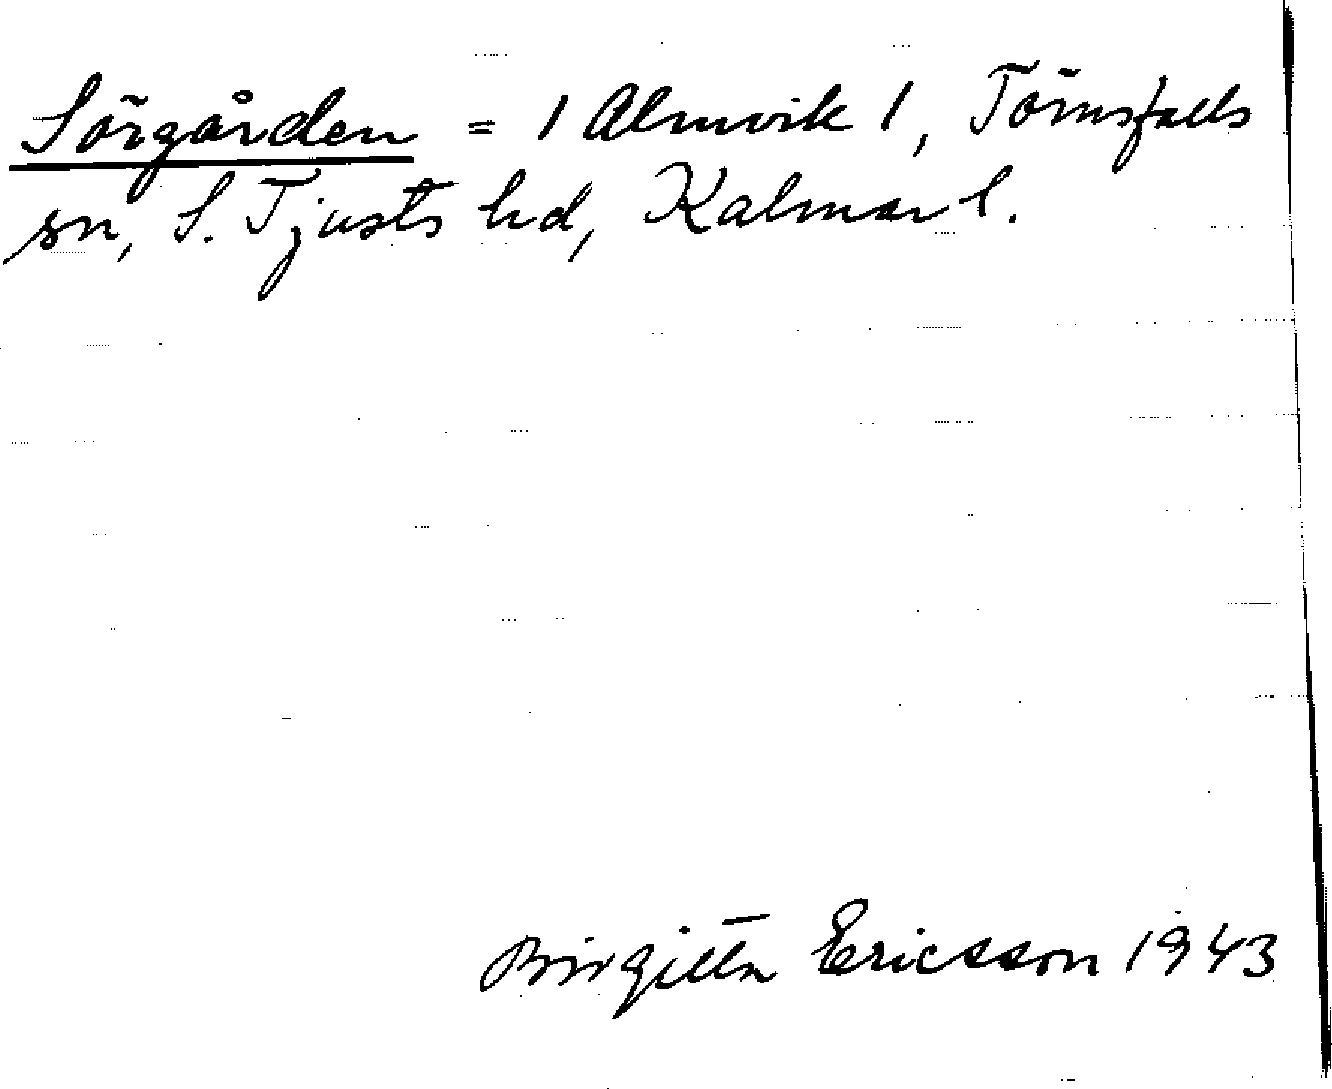 Sörgården = / Almvik /, Törnsfalls
sn, S. Tjusts hd, Kalmar l.
Birgitta Ericsson 1943